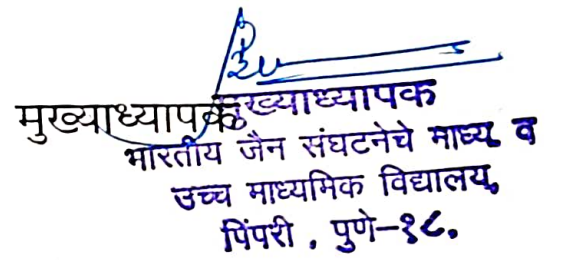 मुख्याध्यापक
मुख्याध्यापक
भारतीय जैन संघटनेचे माध्य. व
उच्च माध्यमिक विद्यालय,
पिंपरी, पुणे-१८.